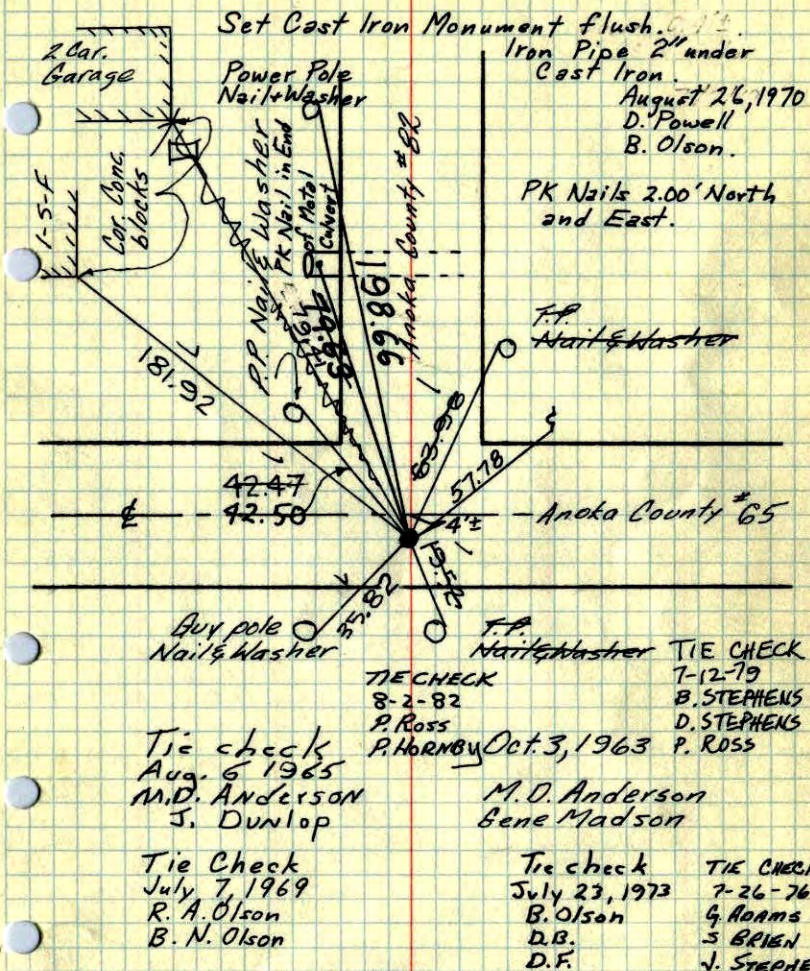 Set Cast Iron Monument flush.
Iron Pipe 2" under
Cast Iron.
August 26, 1970
D. Powell
B. Olson.
2 Car.
Garage
Power Pole
Nail & Washer
PK Nails 2.00' North
and East.
1-S-F
Cor. Conc.
blocks
P.P. Nail & Washer
PK Nail in End
of Metal
Culvert
Anoka County #82
198.66
T.P.
Nail & Washer
181.92
63.98
57.78
42.47
42.50
¢
4'±
Anoka County #65
35.82
Guy pole
Nail & Washer
T.P.
Nail & Washer
TIE CHECK
7-12-79
B. STEPHENS
D. STEPHENS
P. ROSS
TIE CHECK
8-2-82
P. Ross
P. HORNBY
Oct. 3, 1963
M.D. Anderson
Gene Madson
Tie check
Aug. 6 1965
M.D. Anderson
J. Dunlop
Tie Check
July 7, 1969
R. A. Olson
B. N. Olson
Tie check
July 23, 1973
B. Olson
D.B.
D.F.
TIE CHECK
7-26-76
G. ADAMS
S BRIEN
J. STEPHE